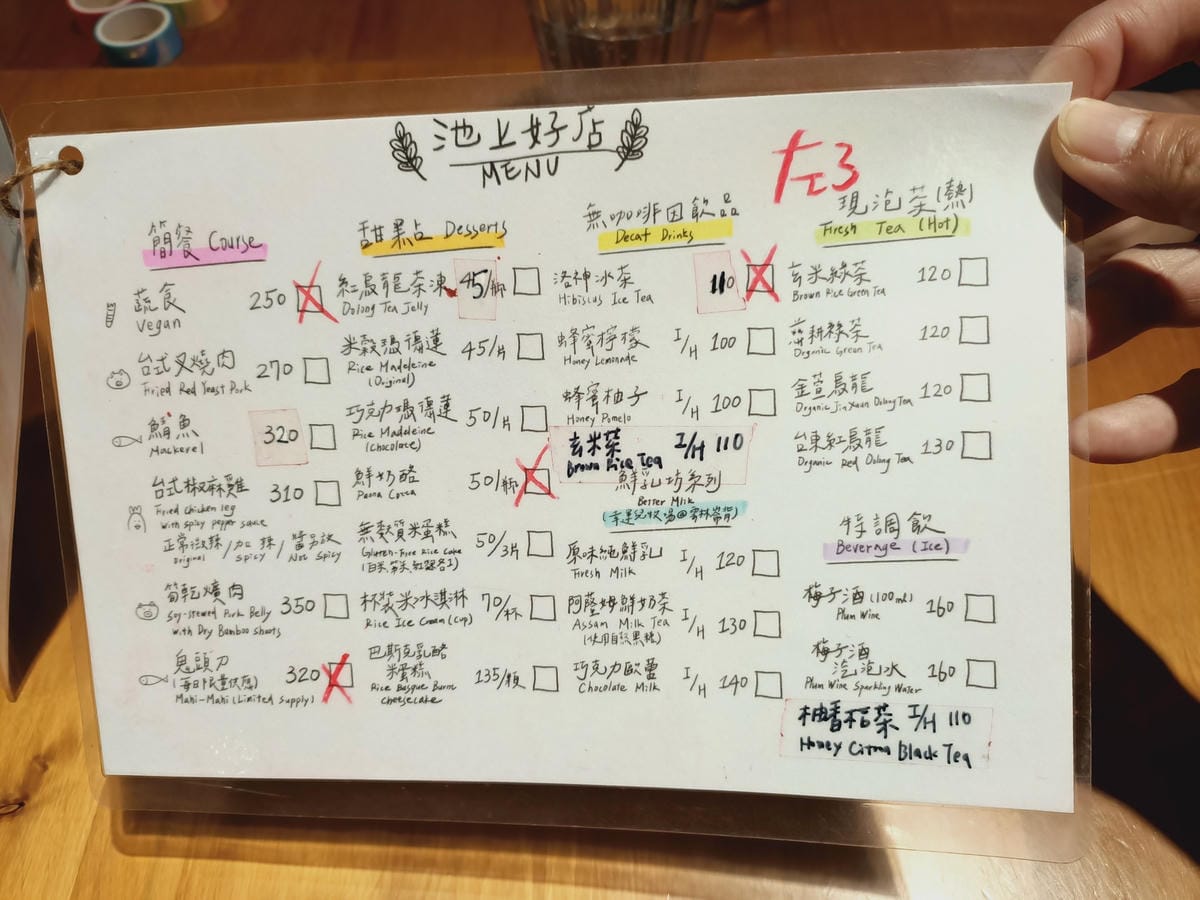 池上好店
MENU
左3
簡餐 Course
蔬食 250
Vegan
台式叉燒肉 270
Fried Red Yeast Pork
鯖魚 320
Mackerel
台式椒麻雞 310
Fried chicken leg
with spicy pepper sauce
正常微辣 / 加辣 / 醬另放
original / spicy / Not spicy
筍乾爌肉 350
Soy-stewed Pork Belly
with Dry Bamboo shoots
鬼頭刀 320
(每日限量供應)
Mahi-Mahi (Limited supply)
甜點 Desserts
紅烏龍茶凍 45/瓶
Oolong Tea Jelly
米穀瑪德蓮 45/片
Rice Madeleine
(Original)
巧克力瑪德蓮 50/片
Rice Madeleine
(Chocolate)
鮮奶酪 50/瓶
Panna Cocca
無麩質米蛋糕 50/3片
Gluten-Free Rice Cake
杯裝米冰淇淋 70/杯
Rice Ice Cream (Cup)
巴斯克乳酪
米蛋糕 135/顆
Rice Basque Burn
cheesecake
無咖啡因飲品
Decaf Drinks
洛神冰茶 110
Hibiscus Ice Tea
蜂蜜檸檬 I/H 100
Honey Lemonade
蜂蜜柚子 I/H 100
Honey Pomelo
玄米茶 I/H 110
Brown Rice Tea
鮮乳坊系列
Better Milk
(幸運兒牧場@雲林崙背)
原味純鮮乳 I/H 120
Fresh Milk
阿薩姆鮮奶茶 I/H 130
Assam Milk Tea
(使用自然黑糖)
巧克力歐蕾 I/H 140
Chocolate Milk
現泡茶(熱)
Fresh Tea (Hot)
玄米綠茶 120
Brown Rice Green Tea
綠茶 120
Organic Green Tea
金萱烏龍 120
Organic JinXuan Oolong Tea
台東紅烏龍 130
Organic Red Oolong Tea
特調飲
Beverage (Ice)
梅子酒 (100ml) 160
Plum Wine
梅子酒
氣泡水 160
Plum Wine Sparkling Water
柚香 茶 I/H 110
Honey Citron Black Tea